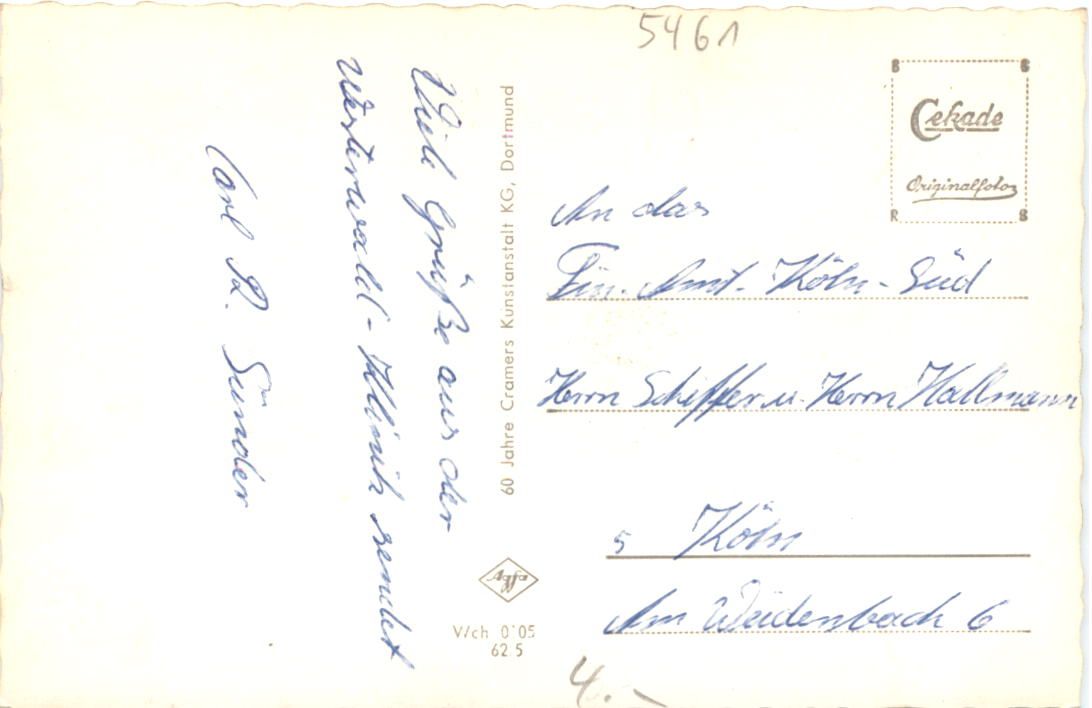 5461
Viele Grüße aus der
Westerwald-Klinik sendet
Carl P. Sünder
60 Jahre Cramers Kunstanstalt KG, Dortmund
Agfa
V/ch 0'05
62 5
4.-
Cekade
Originalfoto
An das
Fin.-Amt-Köln-Süd
Herrn Schiffer u. Herrn Hallmann
5 Köln
Am Weidenbach 6